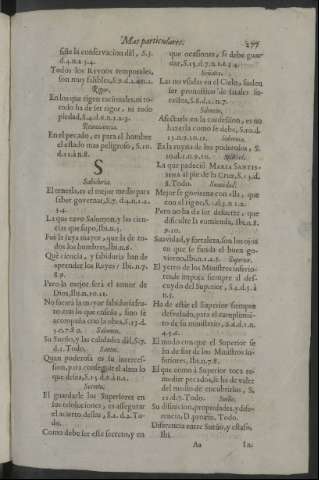 Mas particulares. 277
siste la conservacion dèl, S.5.
d.4.n.2.3.4.
Todos los Reynos temporales,
son muy falibles, S.7.d.2.
Rigor.
En los que rigen racionales, ni todo
ha de ser rigor, ni todo
piedad, S.4.d.
Reverencia.
En el pecado, es para el hombre
el estado mas peligroso, S.10.
d.1.n.8.
S
Sabiduria.
El tenerla, es el mejor medio para
saber governar, S.7. d.4.n.1.2.
3.4.
La que tuvo Salomon, y las ciencias
que supo, Ibi.n.5.
Fuè la suya mayor, que la de todos
los hombres, Ibi.n.6.
Què ciencia, y sabiduria han de
aprender los Reyes? Ibi.n.7.
8.9.
Pero la mejor serà el temor de
Dios, Ibi.n.10.11.
No sacará la mayor sabiduria fruto
con lo que enseña, sino se
acompaña con la obra, S.13.d.
Salomon.
Su Sueño, y las calidades dèl, S.7.
d.1. Todo. Santos.
Quan poderosa es su intercession,
para conseguir el alma lo
que desea, S.15.d.8.
Secreto.
El guardarle los Superiores en
sus resoluciones, es assegurar
el acierto dellas, S.2. d.2. Todo.
Como debe ser este secreto, y en
que ocasiones, se debe guardar,
S.13.d.7.n.1.2.3.4.
Señales.
Las no usadas en el Cielo, suelen
ser pronostico de fatales sucessos,
S.8.d.1.n.7.
Silencio.
Afectarle en la confession, es no
hazerla como se debe, S.10.d.
Soberbia.
Es la ruyna de los poderosos, S.
10.d.1.n.9.10. Soledad.
La que padeció MARIA SANTISSIMA
al pie de la Cruz, S.13.d.
8. Todo. Suavidad.
Mejor se govierna con ella, que
con el rigor, S.4.d.3.n.1.2.
Pero no ha de ser de suerte, que
dificulte la enmienda, Ibi.n.8.
9.10.
Suavidad, y fortaleza, son los ojos
en que se funda el buen govierno,
Ibi.n.1.2.5. Superior.
El yerro de los Ministros inferiores
empeza siempre del descuydo
del Superior, S.2.d.5.
n.5.
Ha de estàr el Superior siempre
desvelado, para el cumplimiento
de su ministerio, S.2.d.1.n.
4.5.
El modo con que el Superior se
ha de fiar de los Ministros inferiores,
Ibi.n.7.8.
El que como à Superior toca remediar
pecados, se ha de valer
del medio de encubrirlos, S.
12.d.7. Todo. Sueño.
Su difinicion, propriedades, y diferencia,
D. proem. Todo.
Diferencia entre Sueño, y extasis.
Ibi.
Aa In-